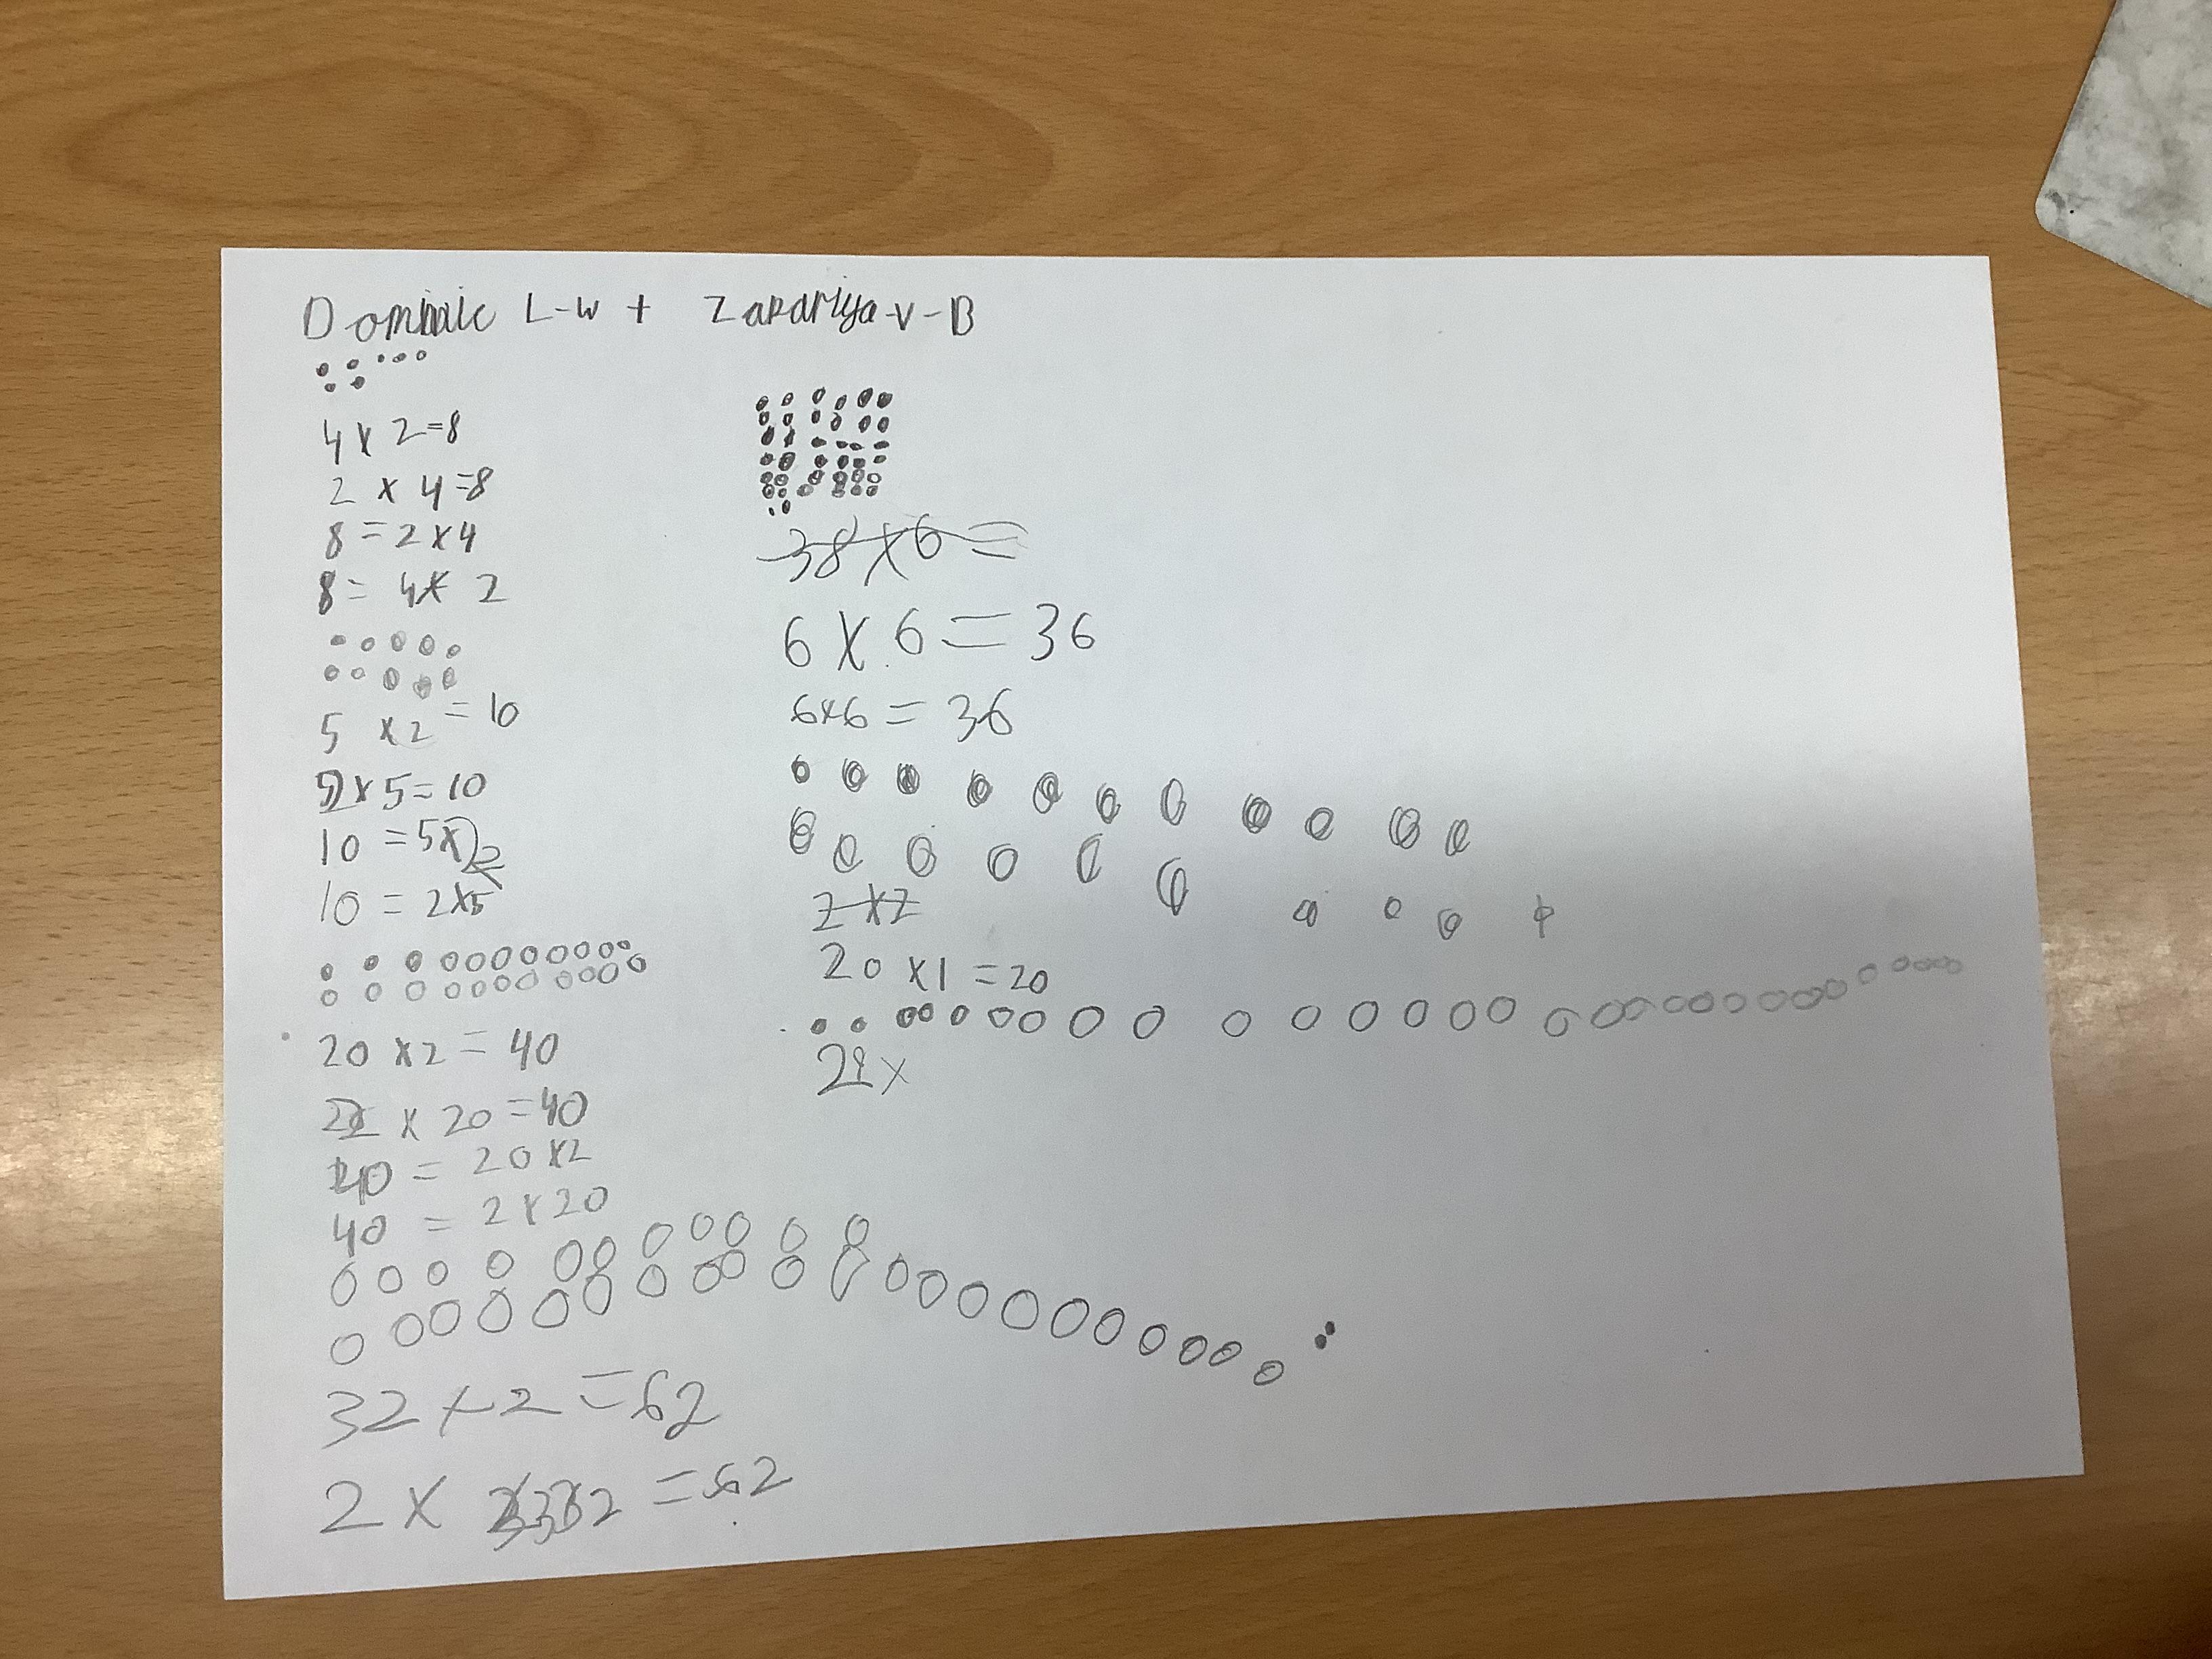 Dominic L-W + Zakariya-V-B
4 x 2=8
2 x 4=8
8 = 2 x 4
8 = 4 x 2
5 x 2 = 10
2 x 5 = 10
10 = 5 x 2
10 = 2 x 5
20 x 2 = 40
2 x 20 = 40
40 = 20 x 2
40 = 2 x 20
32 x 2 = 62
2 x 32 = 62
38 x 6 =
6 x 6 = 36
6x6 = 36
2 x 2
20 x 1 = 20
x